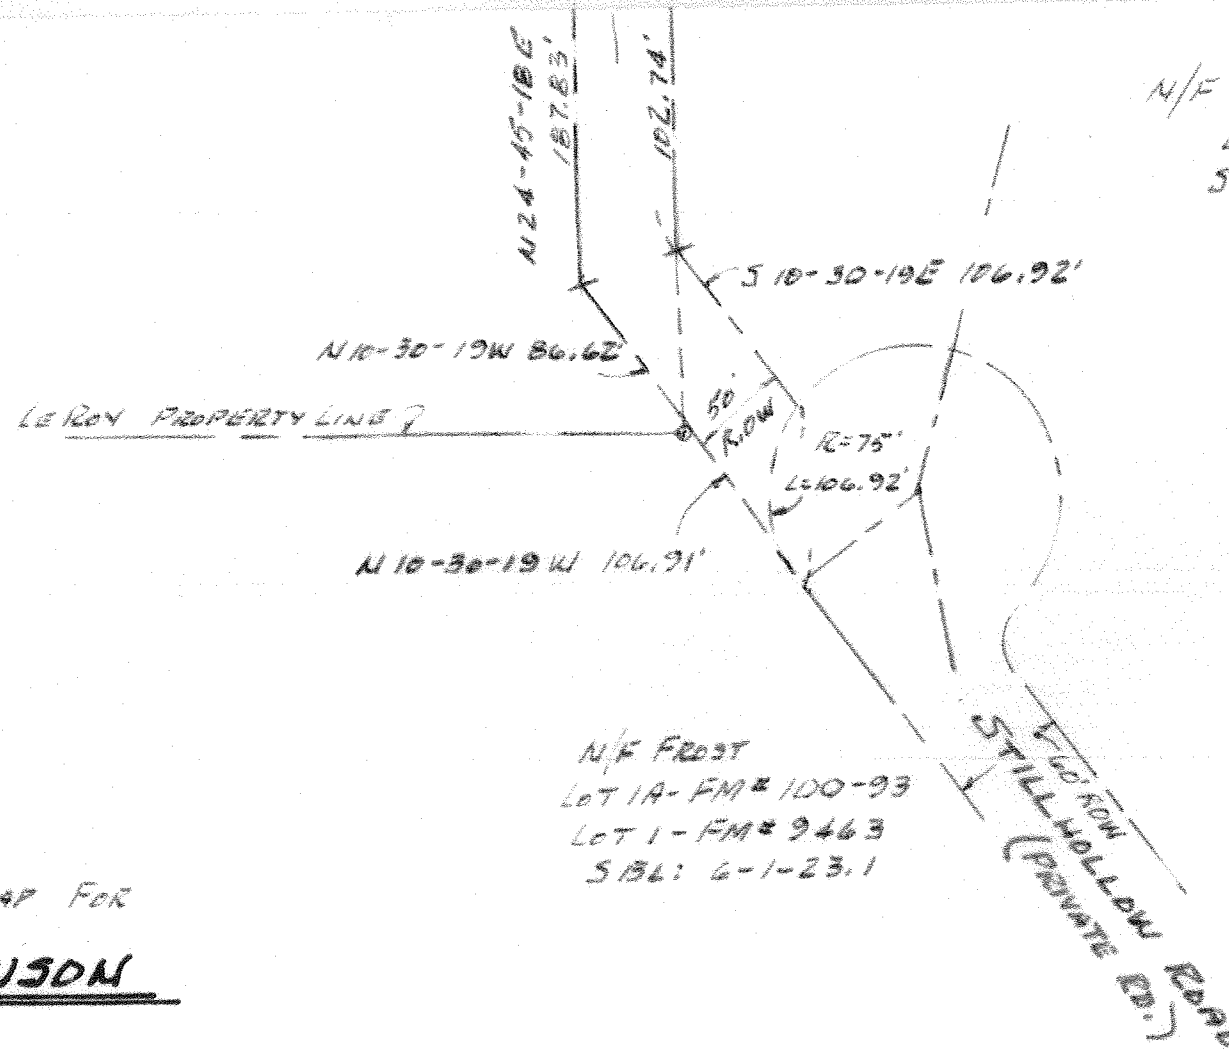 N24-45-18E
187.83'
102.74'
N/F
S 10-30-19E 106.92'
N 10-30-19W 86.62'
LEROY PROPERTY LINE ?
50'
R.O.W
R=75'
L=106.92'
N 10-30-19 W 106.91'
N/F FROST
LOT 1A - FM# 100-93
LOT 1 - FM# 9463
SBL: 6-1-23.1
60' ROW
STILL HOLLOW ROAD
(PRIVATE RD.)
FOR